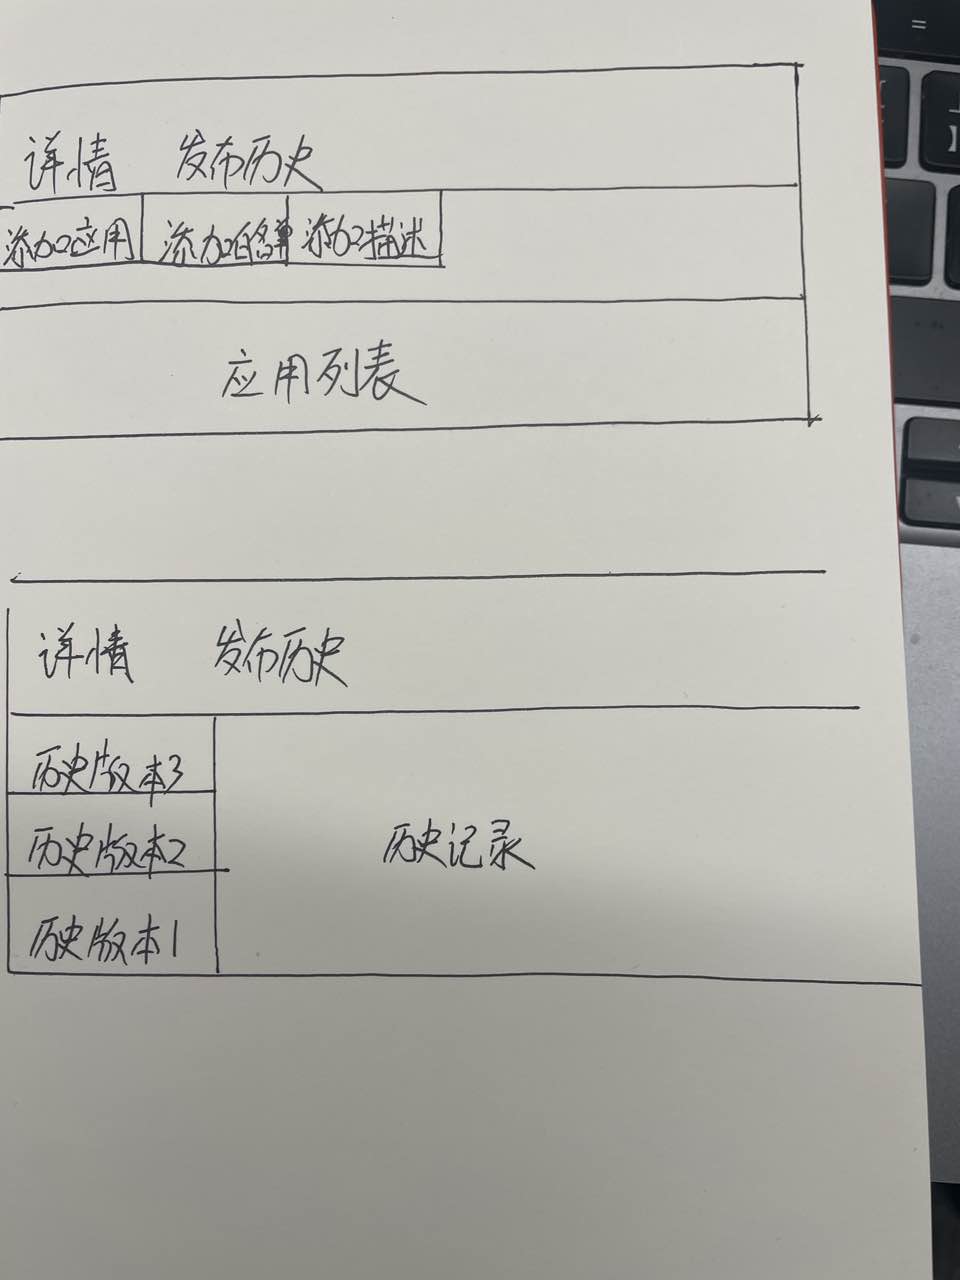 详情 发布历史
添加应用 添加白名单 添加描述
应用列表
详情 发布历史
历史版本3
历史版本2
历史记录
历史版本1